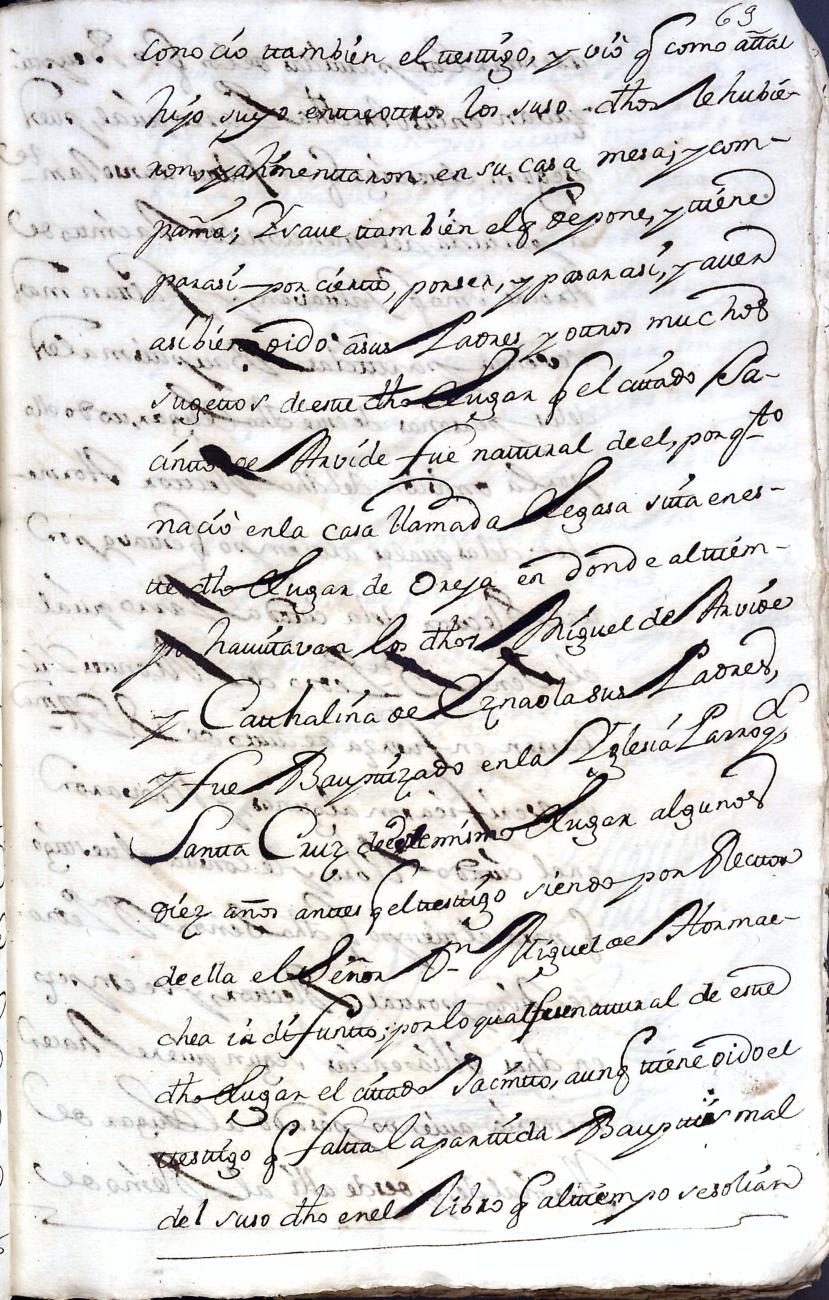 69
conocio tambien el testigo, y vio q como a tal
hijo suyo entre otros los suso dhos le hubie-
ron, y alimentaron en su casa mesa, y com-
pañia; Y save tambien el q depone, y tiene
para si por cierto, por ser, y pasar asi, y aver
asi bien oido a sus Padres y otros muchos
sugetos de este dho Lugar q el citado Ja-
cinto de Arvide fue natural de el, por qto
nacio en la casa llamada Legasa sita en es-
te dho Lugar de Oreja en donde al tiem-
po havitavan los dhos Miguel de Arvide
y Cathalina de Eznaola sus Padres,
y fue Baptizado en la Yglesia Parroql
Santa Cruz de este mismo Lugar algunos
diez años antes q el testigo siendo por Rector
de ella el Señor Dn Miguel de Hormae-
chea ia difunto; por lo qual fue natural de este
dho Lugar el citado Jacinto, aunq tiene oido el
testigo q falta la partida Baptismal
del suso dho en el Libro q al tiempo se solian